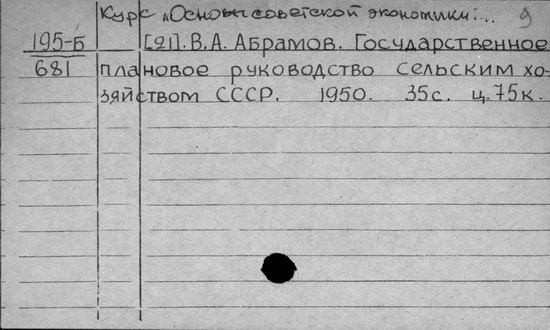 Курс „Основы советской экономики"... 9
195-Б [21]. В.А. Абрамов. Государственное
681 плановое руководство сельским хо-
зяйством СССР. 1950. 35с. ц. 75к.